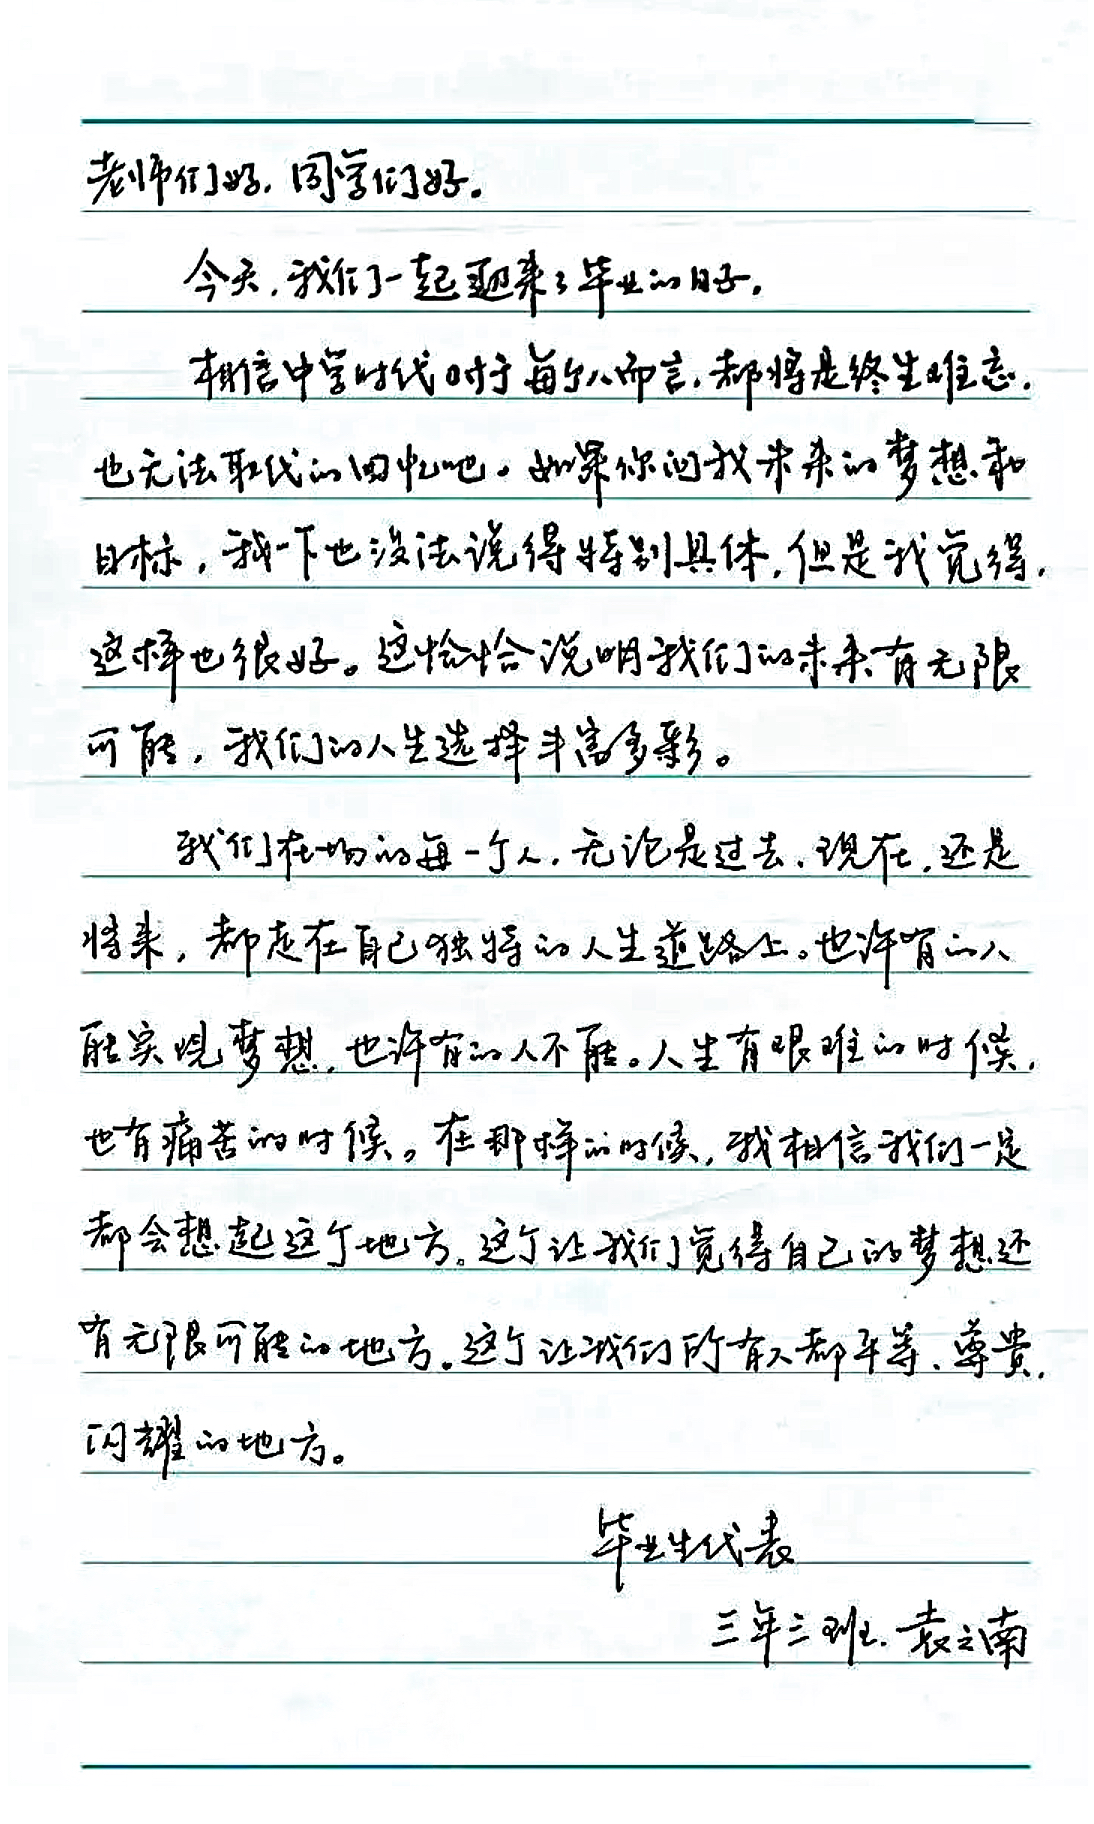 老师们好，同学们好。
今天，我们一起迎来了毕业的日子。
相信中学时代对于每个人而言，都将是终生难忘，
也无法取代的回忆吧。如果你问我未来的梦想和
目标，我一下也没法说得特别具体，但是我觉得，
这样也很好。这恰恰说明我们的未来有无限
可能，我们的人生选择丰富多彩。
我们在场的每一个人，无论是过去、现在，还是
将来，都走在自己独特的人生道路上。也许有的人
能实现梦想，也许有的人不能。人生有艰难的时候，
也有痛苦的时候。在那样的时候，我相信我们一定
都会想起这个地方。这个让我们觉得自己的梦想还
有无限可能的地方。这个让我们所有人都平等、尊贵、
闪耀的地方。
毕业生代表
三年三班.袁之南